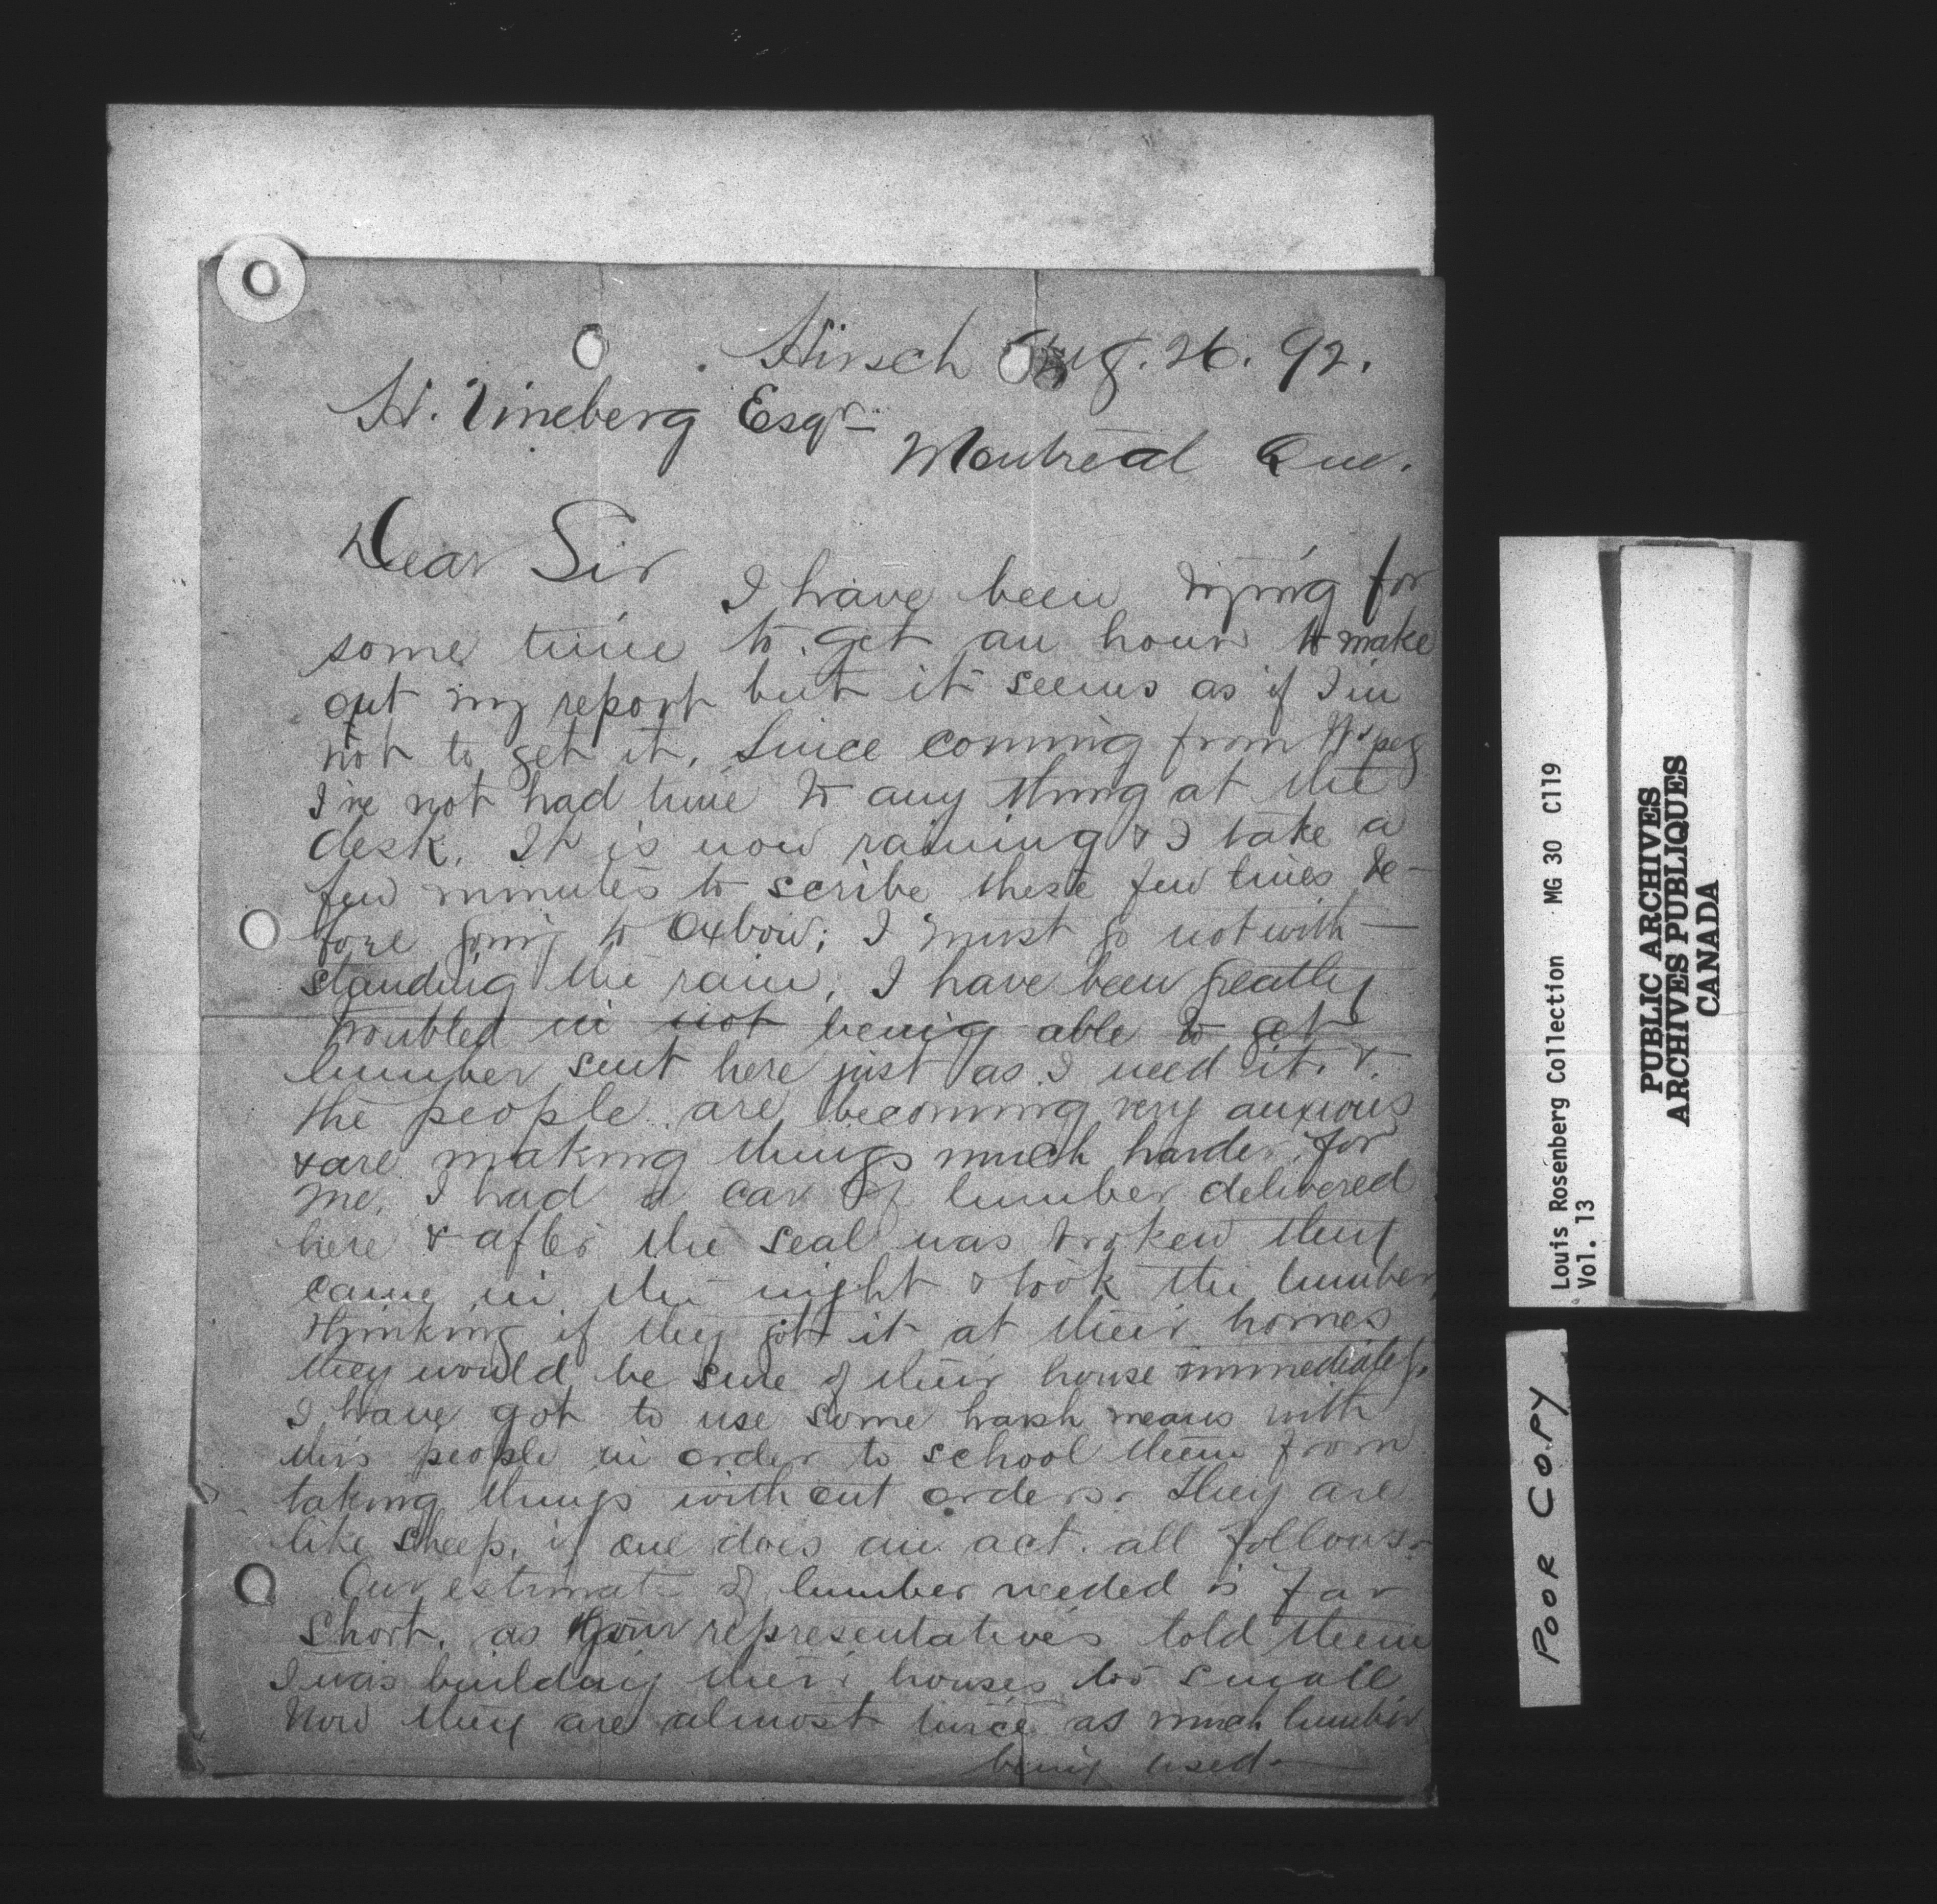 Hirsch Aug. 26. 92.
H. Vineberg Esqr
Montreal Que.
Dear Sir
I have been trying for
some time to get an hour to make
out my report but it seems as if I'm
not to get it. Since coming from W'peg
I've not had time to any thing at the
desk. It is now raining & I take a
few minutes to scribe these few lines be-
fore going to Oxbow; I must go notwith-
standing the rain. I have been greatly
troubled in not being able to get
lumber sent here just as I need it. &.
the people are becoming very anxious
& are making things much harder for
me. I had a car of lumber delivered
here & after the seal was broken they
came in the night & took the lumber,
thinking if they got it at their homes
they would be sure of their house immediately.
I have got to use some harsh means with
this people in order to school them from
taking things without orders. They are
like sheep, if one does an act. all follows.
Our estimate of lumber needed is far
short. as your representatives told them
I was building their houses too small
Now they are almost twice as much lumber
being used.
Louis Rosenberg Collection MG 30 C119
Vol. 13
PUBLIC ARCHIVES
ARCHIVES PUBLIQUES
CANADA
POOR COPY